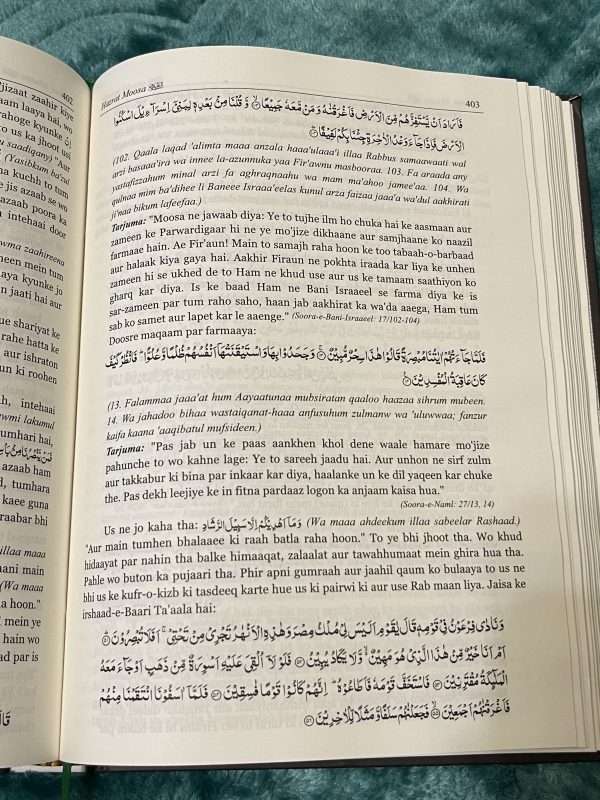 402
'jizaat zaahir kiye
aam laaya hai, wo
rahoge kyunke إِنْ
to us ka jhoot usi
u saadiqany) "Aur
(Yasibkum ba'zul
a kuchh to tum
jis azaab se wo
azaab poora ka
intehaai door
wma zaahireena
meen mein tum
aya kyunke jo
n jaati hai aur
ue shariyat ke
rahe hatta ke
aur ishraton
un ki roohen
h, intehaai
wmi lakumul
tumhari hai,
azaab ham
d, tumhara
kaee guna
raabar bhi
illaa maaa
aani main
(Wa maaa
a hoon."
mein ye
hain wo
ad par is
Hazrat Moosa
403
فَاَرَادَ اَنْ يَّسْتَفِزَّهُمْ مِّنَ الْاَرْضِ فَاَغْرَقْنٰهُ وَمَنْ مَّعَهٗ جَمِيْعًا ۙ وَّقُلْنَا مِنْۢ بَعْدِهٖ لِبَنِيْٓ اِسْرَآءِيْلَ اسْكُنُوا
الْاَرْضَ فَاِذَا جَآءَ وَعْدُ الْاٰخِرَةِ جِئْنَا بِكُمْ لَفِيْفًا
(102. Qaala laqad 'alimta maaa anzala haaa'ulaaa'i illaa Rabbus samaawaati wal
arzi basaaa'ira wa innee la-azunnuka yaa Fir'awnu masbooraa. 103. Fa araada any
yastafizzahum minal arzi fa aghraqnaahu wa mam ma'ahoo jamee'aa. 104. Wa
qulnaa mim ba'dihee li Baneee Israaa'eelas kunul arza faizaa jaaa'a wa'dul aakhirati
ji'naa bikum lafeefaa.)
Tarjuma: "Moosa ne jawaab diya: Ye to tujhe ilm ho chuka hai ke aasmaan aur
zameen ke Parwardigaar hi ne ye mo'jize dikhaane aur samjhaane ko naazil
farmaae hain. Ae Fir'aun! Main to samajh raha hoon ke too tabaah-o-barbaad
aur halaak kiya gaya hai. Aakhir Firaun ne pokhta iraada kar liya ke unhen
zameen hi se ukhed de to Ham ne khud use aur us ke tamaam saathiyon ko
gharq kar diya. Is ke baad Ham ne Bani Israaeel se farma diya ke is
sar-zameen par tum raho saho, haan jab aakhirat ka wa'da aaega, Ham tum
sab ko samet aur lapet kar le aaenge." (Soora-e-Bani-Israaeel: 17/102-104)
Doosre maqaam par farmaaya:
فَلَمَّا جَآءَتْهُمْ اٰيٰتُنَا مُبْصِرَةً قَالُوْا هٰذَا سِحْرٌ مُّبِيْنٌ ۚ وَجَحَدُوْا بِهَا وَاسْتَيْقَنَتْهَآ اَنْفُسُهُمْ ظُلْمًا وَّعُلُوًّا ۚ فَانْظُرْ كَيْفَ
كَانَ عَاقِبَةُ الْمُفْسِدِيْنَ
(13. Falammaa jaaa'at hum Aayaatunaa mubsiratan qaaloo haazaa sihrum mubeen.
14. Wa jahadoo bihaa wastaiqanat-haaa anfusuhum zulmanw wa 'uluwwaa; fanzur
kaifa kaana 'aaqibatul mufsideen.)
Tarjuma: "Pas jab un ke paas aankhen khol dene waale hamare mo'jize
pahunche to wo kahne lage: Ye to sareeh jaadu hai. Aur unhon ne sirf zulm
aur takkabur ki bina par inkaar kar diya, haalanke un ke dil yaqeen kar chuke
the. Pas dekh leejiye ke in fitna pardaaz logon ka anjaam kaisa hua."
(Soora-e-Naml: 27/13, 14)
Us ne jo kaha tha: وَمَآ اَهْدِيْكُمْ اِلَّا سَبِيْلَ الرَّشَادِ (Wa maaa ahdeekum illaa sabeelar Rashaad.)
"Aur main tumhen bhalaaee ki raah batla raha hoon." To ye bhi jhoot tha. Wo khud
hidaayat par nahin tha balke himaaqat, zalaalat aur tawahhumaat mein ghira hua tha.
Pahle wo buton ka pujaari tha. Phir apni gumraah aur jaahil qaum ko bulaaya to us ne
bhi us ke kufr-o-kizb ki tasdeeq karte hue us ki pairwi ki aur use Rab maan liya. Jaisa ke
irshaad-e-Baari Ta'aala hai:
وَنَادٰى فِرْعَوْنُ فِيْ قَوْمِهٖ قَالَ يٰقَوْمِ اَلَيْسَ لِيْ مُلْكُ مِصْرَ وَهٰذِهِ الْاَنْهٰرُ تَجْرِيْ مِنْ تَحْتِيْ ۚ اَفَلَا تُبْصِرُوْنَ
اَمْ اَنَا خَيْرٌ مِّنْ هٰذَا الَّذِيْ هُوَ مَهِيْنٌ ۙ وَّلَا يَكَادُ يُبِيْنُ فَلَوْلَآ اُلْقِيَ عَلَيْهِ اَسْوِرَةٌ مِّنْ ذَهَبٍ اَوْ جَآءَ مَعَهُ
الْمَلٰٓئِكَةُ مُقْتَرِنِيْنَ فَاسْتَخَفَّ قَوْمَهٗ فَاَطَاعُوْهُ ۚ اِنَّهُمْ كَانُوْا قَوْمًا فٰسِقِيْنَ فَلَمَّآ اٰسَفُوْنَا انْتَقَمْنَا مِنْهُمْ
فَاَغْرَقْنٰهُمْ اَجْمَعِيْنَ ۙ فَجَعَلْنٰهُمْ سَلَفًا وَّمَثَلًا لِّلْاٰخِرِيْنَ